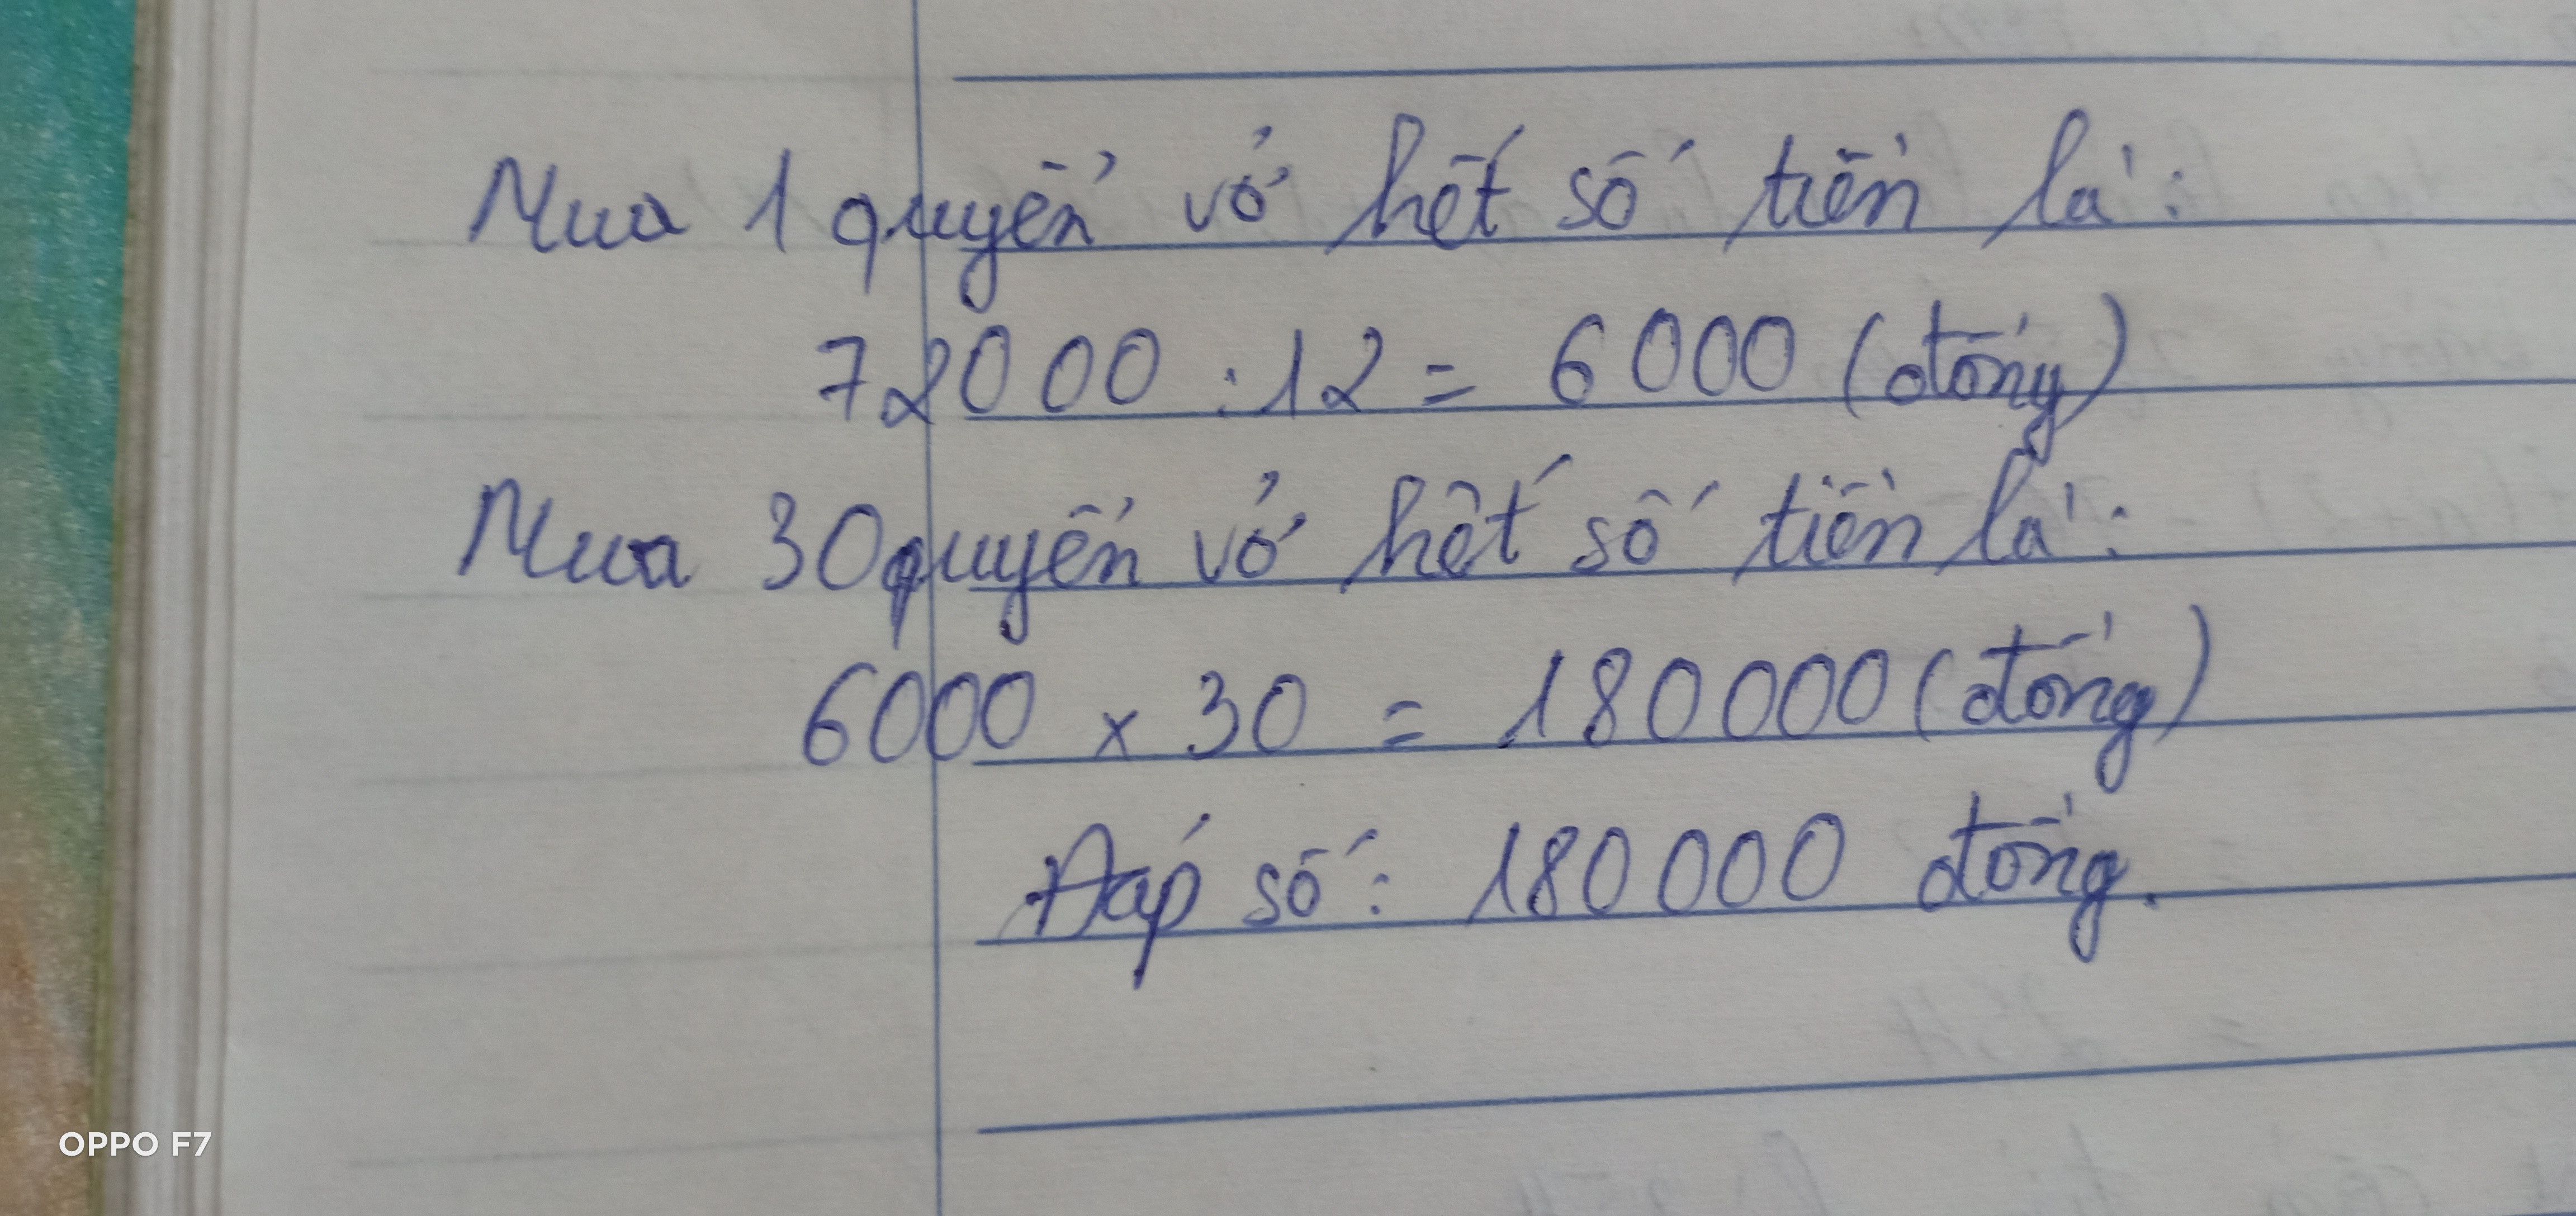 Mua 1 quyển vở hết số tiền là:
72000 : 12 = 6000 (đồng)
Mua 30 quyển vở hết số tiền là:
6000 x 30 = 180000 (đồng)
Đáp số: 180000 đồng.
OPPO F7